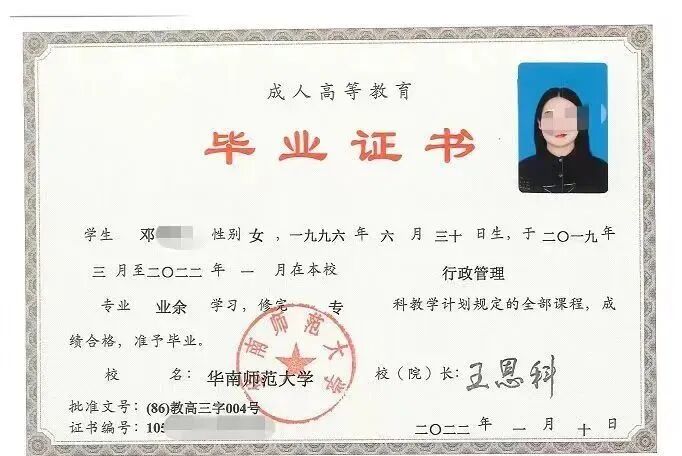 成人高等教育
毕业证书
学生 邓 性别 女 ，一九九六 年 六 月 三十 日生，于 二〇一九 年
三 月至 二〇二二 年 一 月在本校 行政管理
专业 业余 学习，修完 专 科教学计划规定的全部课程，成
绩合格，准予毕业。
校 名： 华南师范大学 校（院）长： 王恩科
批准文号： (86)教高三字004号
证书编号： 105
二〇二二 年 一 月 十 日
华南师范大学